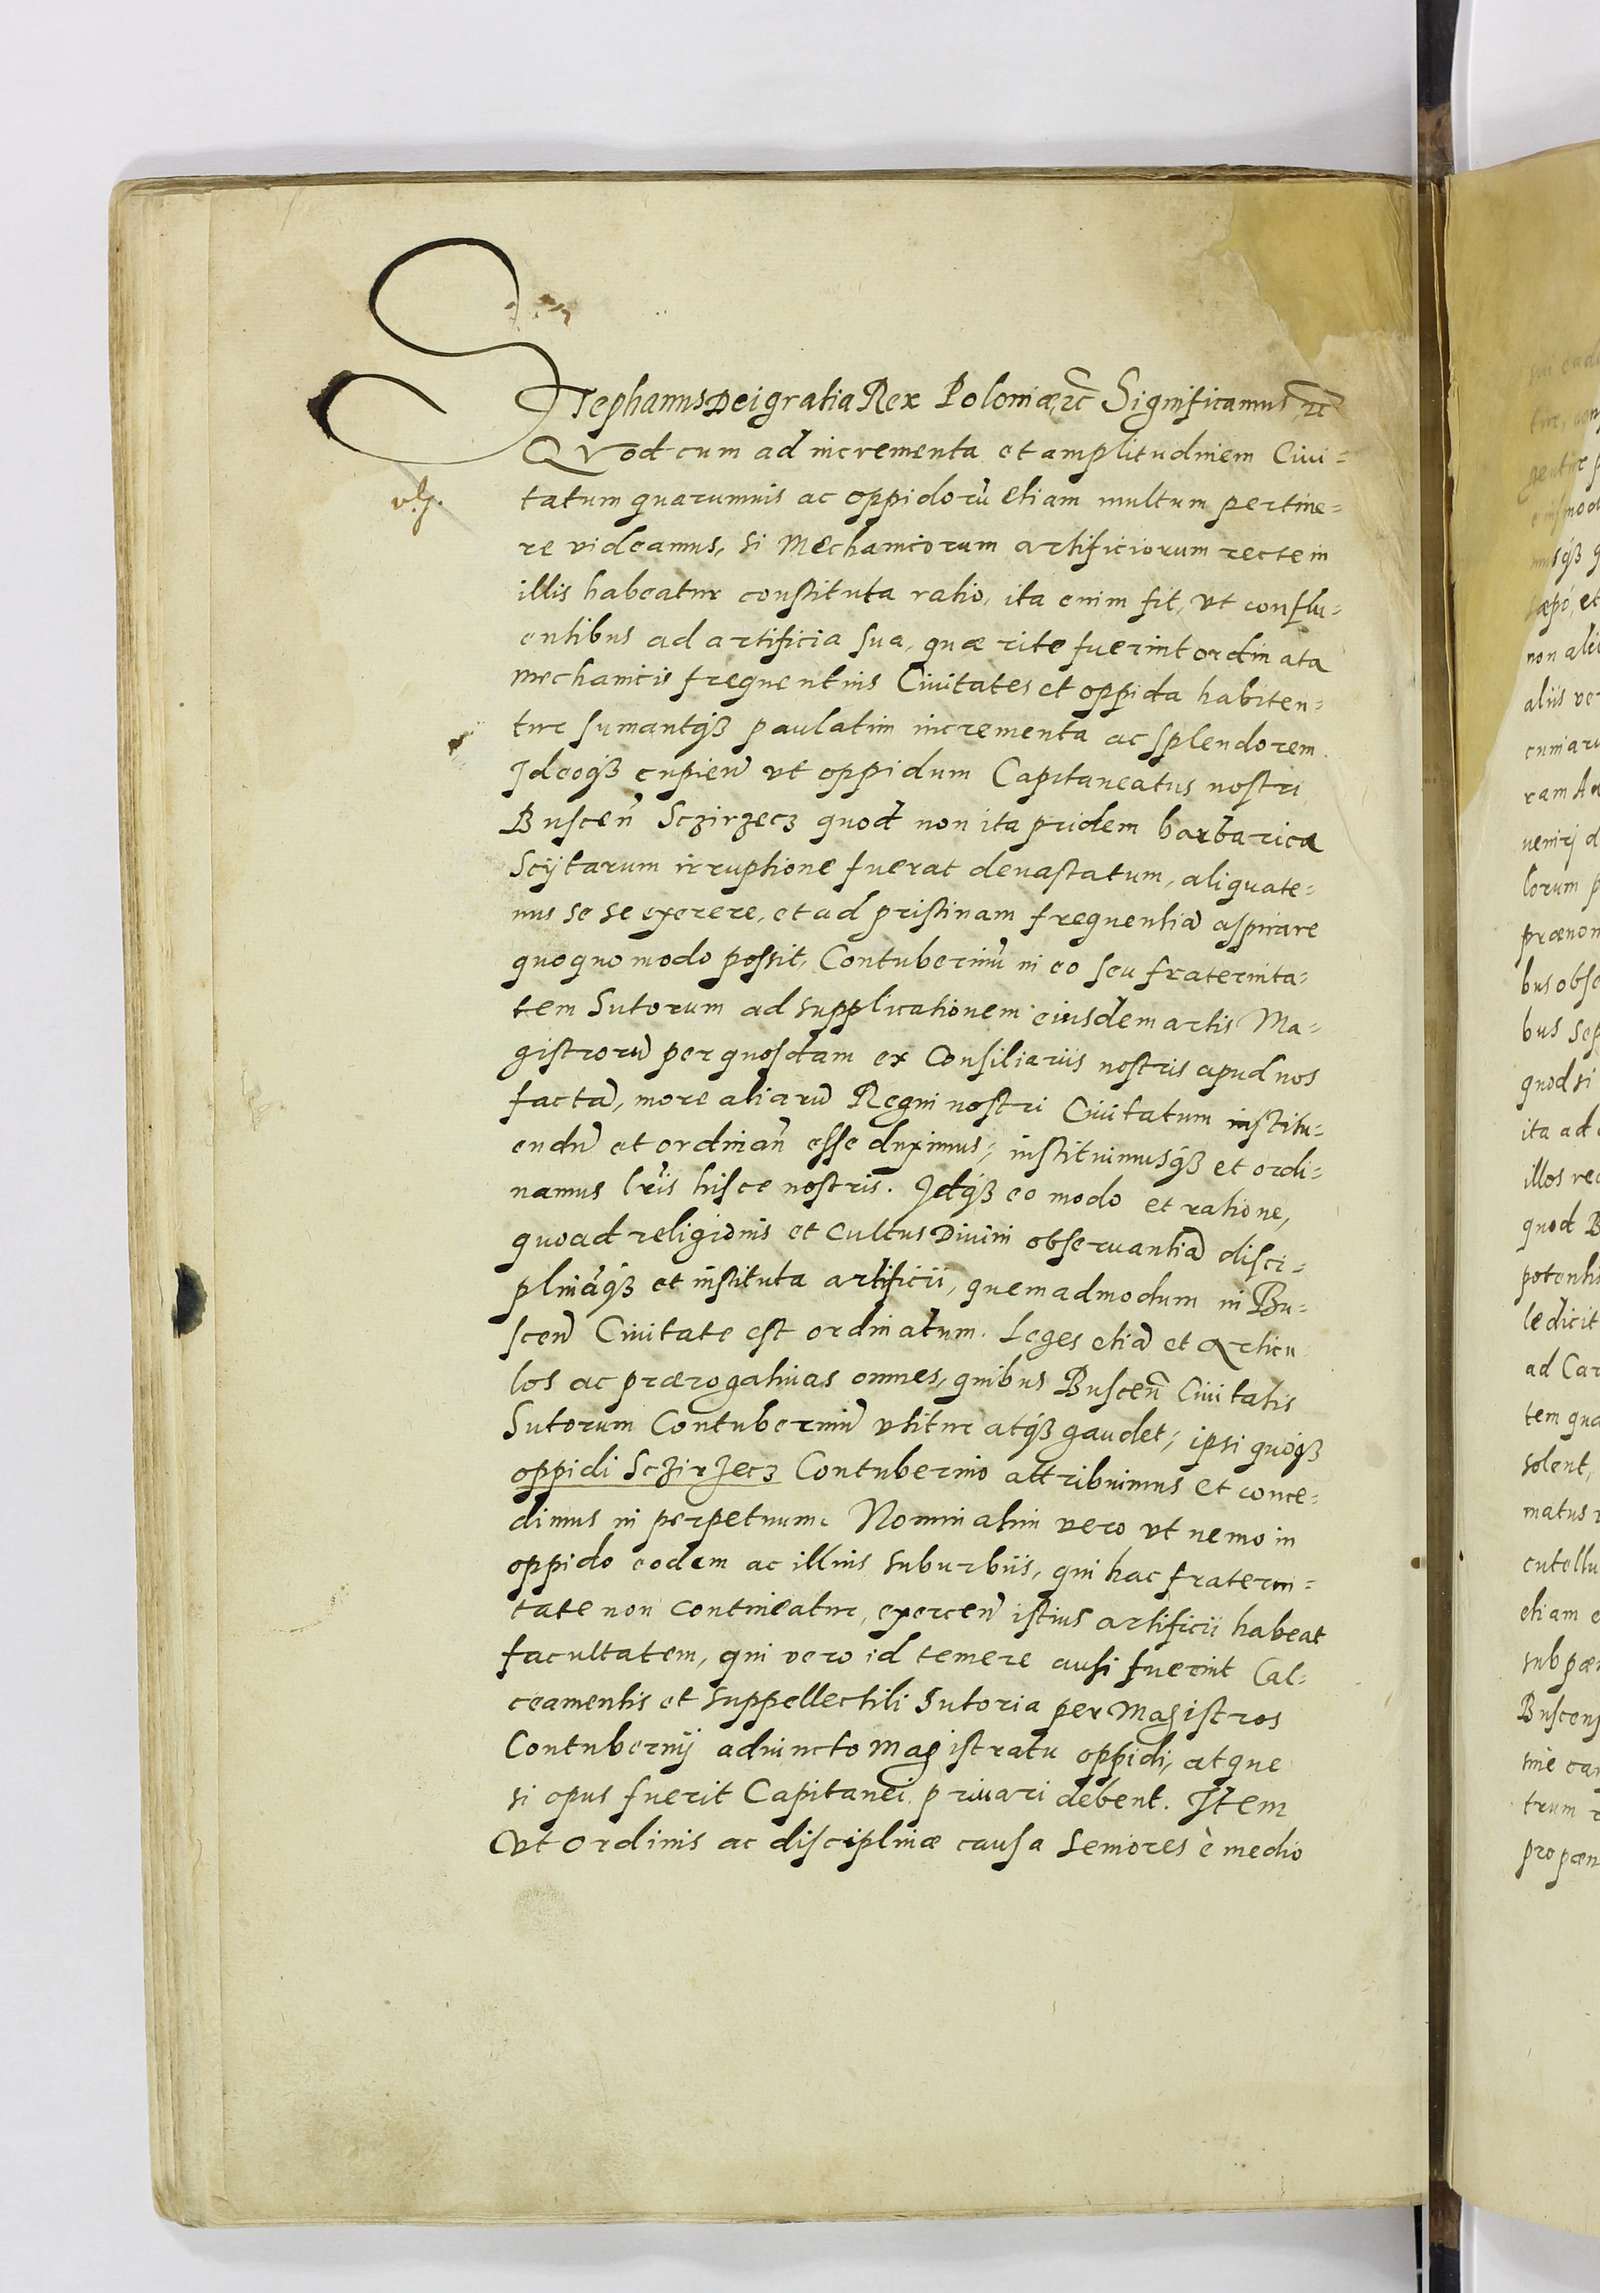 Stephanus Dei gratia Rex Poloniæ, etc̃ Significamus etc̃
Quod cum ad incrementa et amplitudinem Ciui=
tatum quarumuis ac oppidorũ etiam multum pertine=
re videamus, si Mechanicorum artificiorum recte in
illis habeatur constituta ratio, ita enim fit, vt conflu=
entibus ad artificia sua, quæ rite fuerint ordinata
mechanicis frequentius Ciuitates et oppida habiten=
tur sumantq́ꝫ paulatim incrementa ac splendorem.
Ideoq́ꝫ cupieñ vt oppidum Capitaneatus nostri
Busceñ Sczirzecz quod non ita pridem barbarica
Scÿtarum irruptione fuerat deuastatum, aliquate=
nus se se exerere, et ad pristinam frequentiã aspirare
quoquo modo possit, Contuberniũ in eo seu fraternita=
tem Sutorum ad supplicationem eiusdem artis Ma=
gistrorũ per quosdam ex Consiliariis nostris apud nos
factã, more aliarũ Regni nostri Ciuitatum institu=
endũ et ordinañ esse duximus; instituimusq́ꝫ et ordi=
namus lr̃is hisce nostris. Idq́ꝫ eo modo et ratione,
quoad religionis et cultus Diuini obseruantiã disci=
plinãq́ꝫ et instituta artificii, quemadmodum in Bu=
sceñ Ciuitate est ordinatum. Leges etiã et Articu
los ac prærogatiuas omnes, quibus Busceñ Ciuitatis
Sutorum Contuberniũ vtitur atq́ꝫ gaudet; ipsi quoq́ꝫ
oppidi Sczirzecz Contubernio attribuimus et conce=
dimus in perpetuum. Nominatim vero vt nemo in
oppido eodem ac illius suburbiis, qui hac fraterni=
tate non contineatur, exerceñ istius artificii habeat
facultatem, qui vero id temere ausi fuerint Cal=
ceamentis et suppellectili Sutoria per Magistros
Contubernij adiuncto Magistratu oppidi, atque
si opus fuerit Capitanei priuari debent. Item
Vt ordinis ac disciplinæ causa Seniores è medio